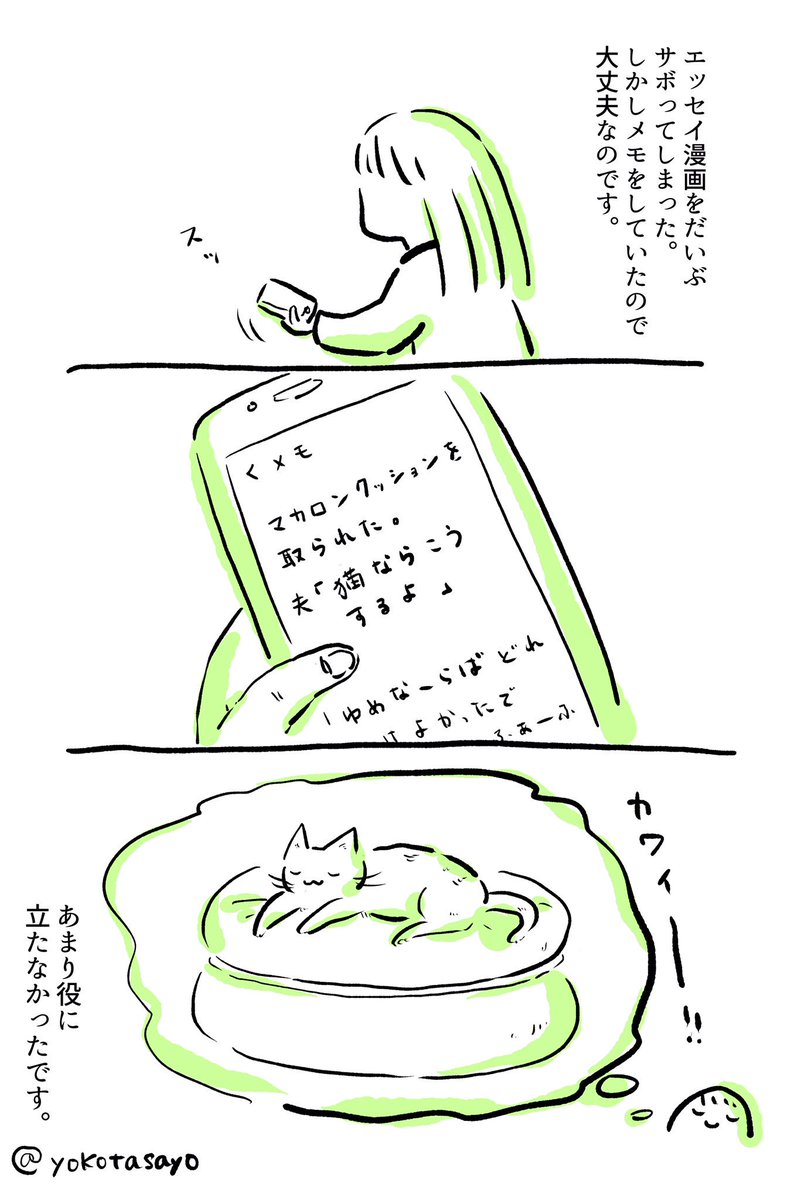 エッセイ漫画をだいぶ
サボってしまった。
しかしメモをしていたので
大丈夫なのです。
スッ
くメモ
マカロンクッションを
取られた。
夫「猫ならこう
するよ」
「ゆめならばどれ
よかったで
ふぁーふ
カワイーー!!
あまり役に
立たなかったです。
@yokotasayo